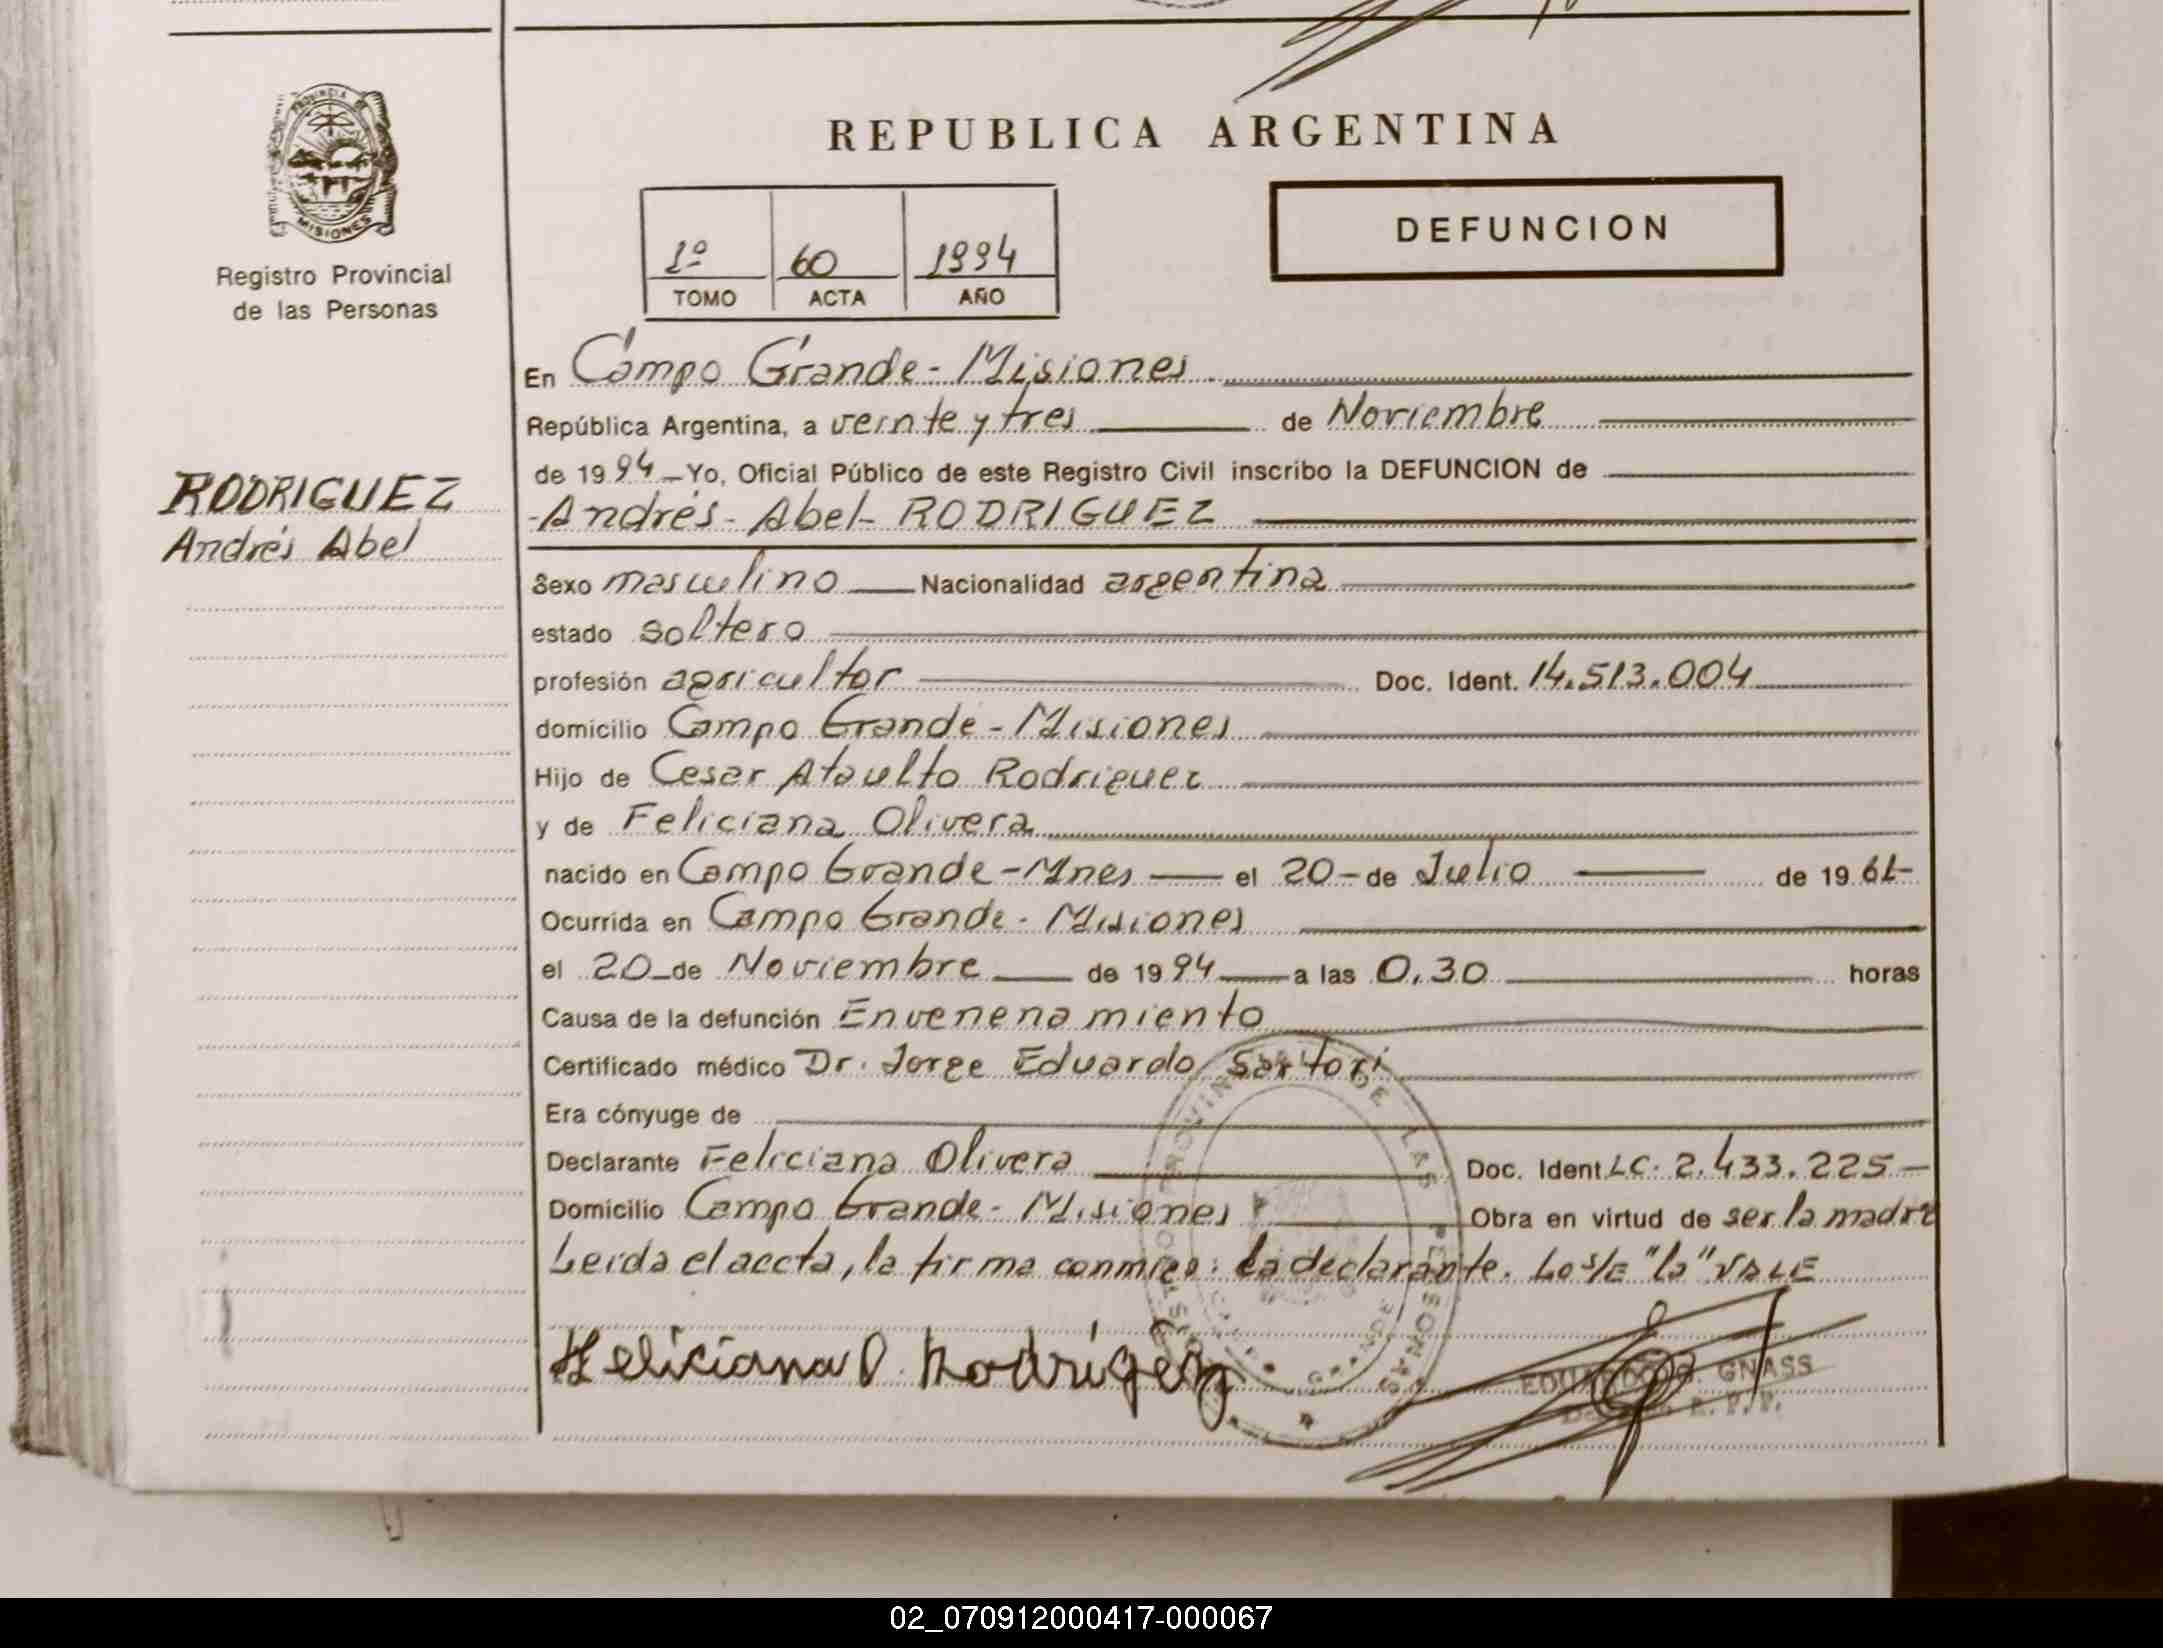 REPUBLICA ARGENTINA
PROVINCIA DE
MISIONES
Registro Provincial
de las Personas
DEFUNCION
1º 60 1994
TOMO ACTA AÑO
En Campo Grande - Misiones
República Argentina, a veinte y tres de Noviembre
de 1994 - Yo, Oficial Público de este Registro Civil inscribo la DEFUNCION de
RODRIGUEZ
Andrés Abel
- Andrés - Abel - RODRIGUEZ
Sexo masculino Nacionalidad argentina
estado soltero
profesión agricultor Doc. Ident. 14.513.004
domicilio Campo Grande - Misiones
Hijo de Cesar Ataulto Rodriguez
y de Feliciana Olivera
nacido en Campo Grande - Mnes el 20 - de Julio de 19
Ocurrida en Campo Grande - Misiones
el 20 de Noviembre de 1994 a las 0.30 horas
Causa de la defunción Envenenamiento
Certificado médico Dr. Jorge Eduardo Sartori
Era cónyuge de
Declarante Feliciana Olivera Doc. Ident LC. 2.433.225 -
Domicilio Campo Grande - Misiones Obra en virtud de ser la madre
Leida el accta, la firma conmigo: la declarante. Lo s/e "la" VALE
Feliciana O. Rodrigez
EDUARDO G. GNASS
R. P. P.
02_070912000417-000067